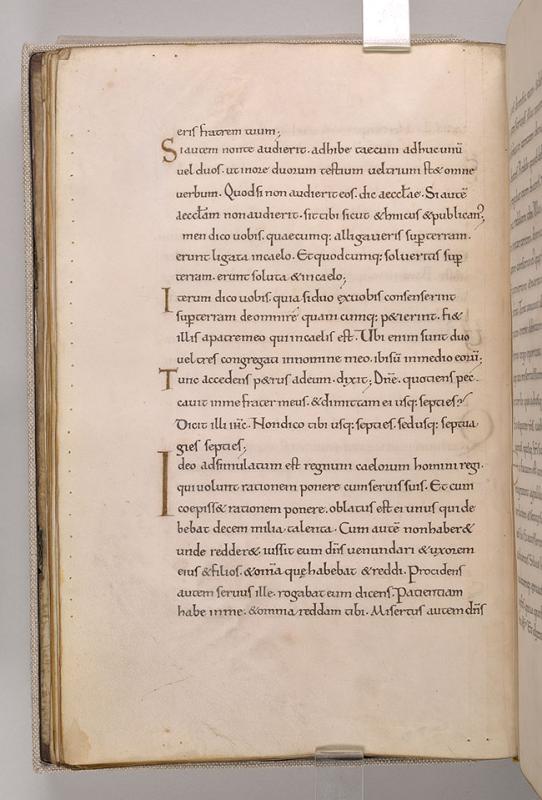 eris fratrem tuum;
Si autem nonte audierit. adhibe taecum adhuc unū
vel duos. ut inore duorum testium vel trium st& omne
verbum. Quodsi non audierit eos. dic aeccłae. Si autē
aeccłam non audierit. sit tibi sicut &hnicus & publican;
men dico uobis. quaecumq: alligaueris sup terram.
erunt ligata incaelo. Et quodcumq: solueritis sup
terram. erunt soluta & incaelo;
Iterum dico uobis. quia si duo exuobis consenserint
sup terram de omni re quam cumq: p&ierint. fi&
illis apatremeo qui incaelis est. Ubi enim sunt duo
uel tres congregati innomine meo. ibi sū inmedio eorū;
Tunc accedens p&rus adeum. dixit; Dnē. quotiens pec
cauit inme frater meus. & dimittam ei usq: septies?
Dicit illi ihc. Non dico tibi usq: septies. sed usq: septua
gies septies;
Ideo adsimilatum est regnum caelorum homini regi.
qui uoluit rationem ponere cum seruis suis. Et cum
coepiss& rationem ponere. oblatus est ei unus qui de
bebat decem milia talenta. Cum autē non haber&
unde redder& iussit eum dns uenundari & uxorem
eius & filios. & omā quę habebat & reddi. Procidens
autem seruus ille. rogabat eum dicens. Patientiam
habe inme. & omnia reddam tibi. Misertus autem dns